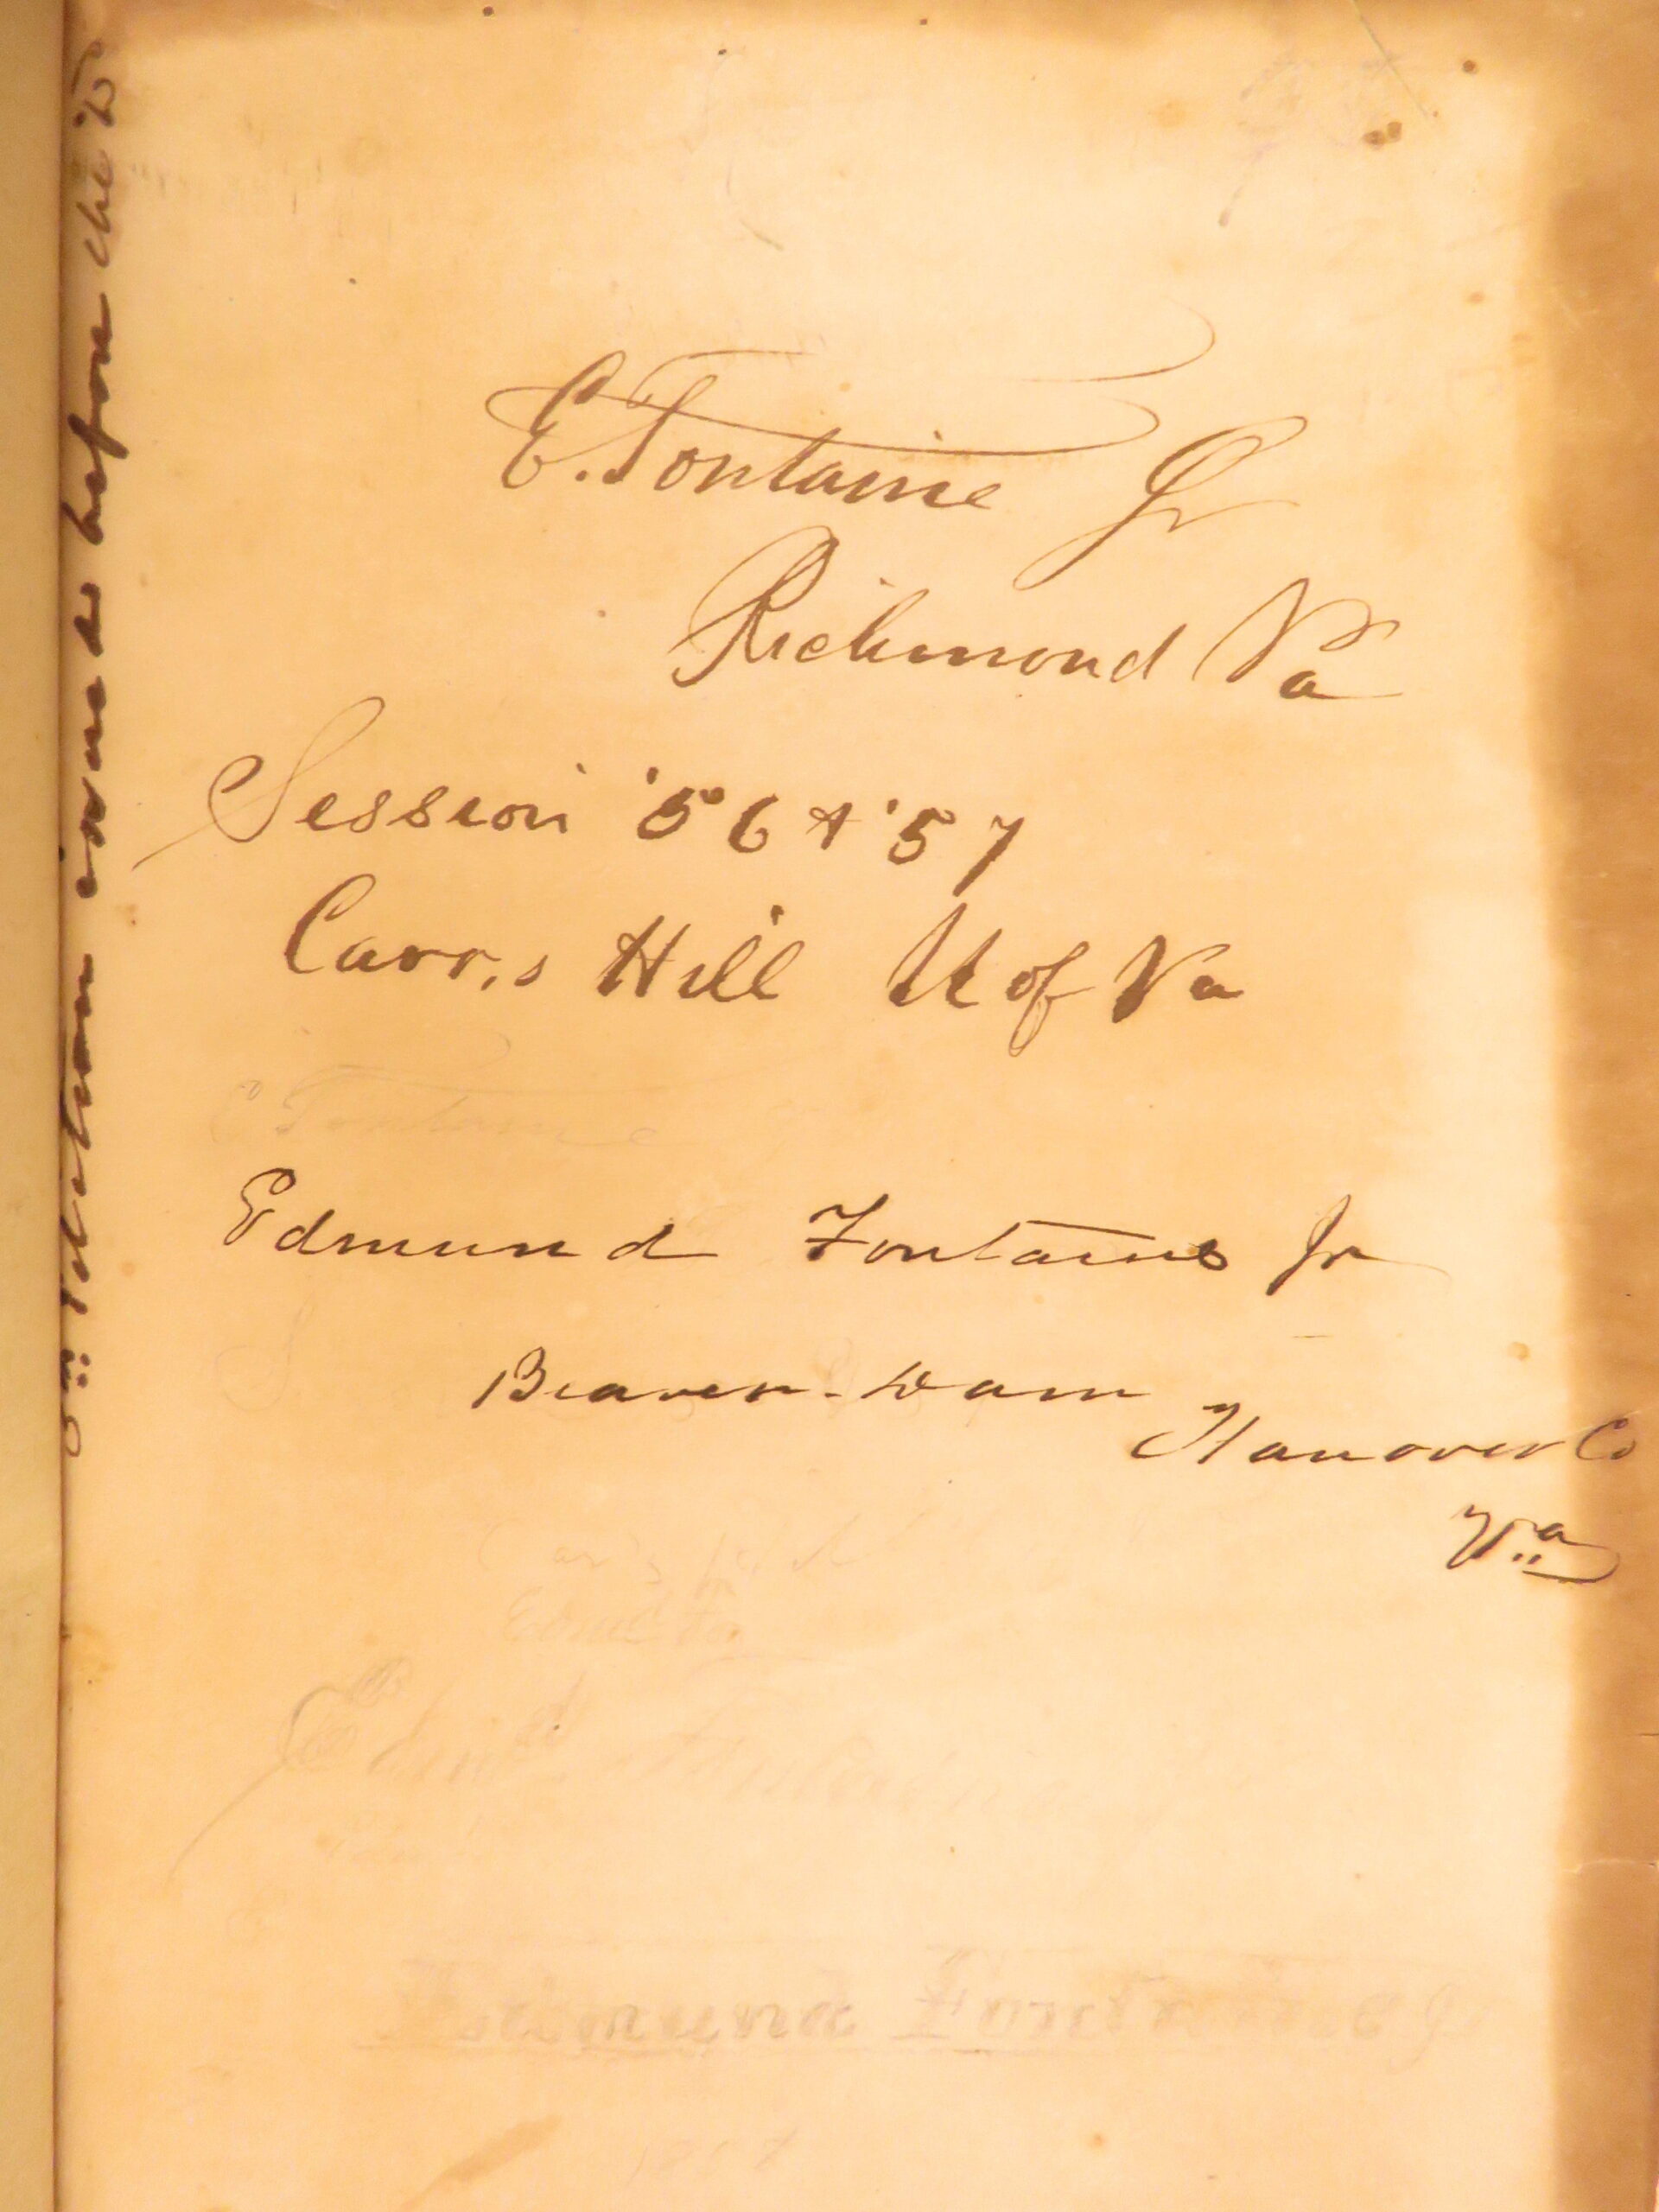 E. Fontaine Jr
Richmond Va
Session '56 & '57
Carr,s Hill U of Va
E Fontaine
Edmund Fontaine Jr
Beaver-Dam
Hanover Co
Va
Edmd Fontaine
Edmund Fontaine Jr
before the